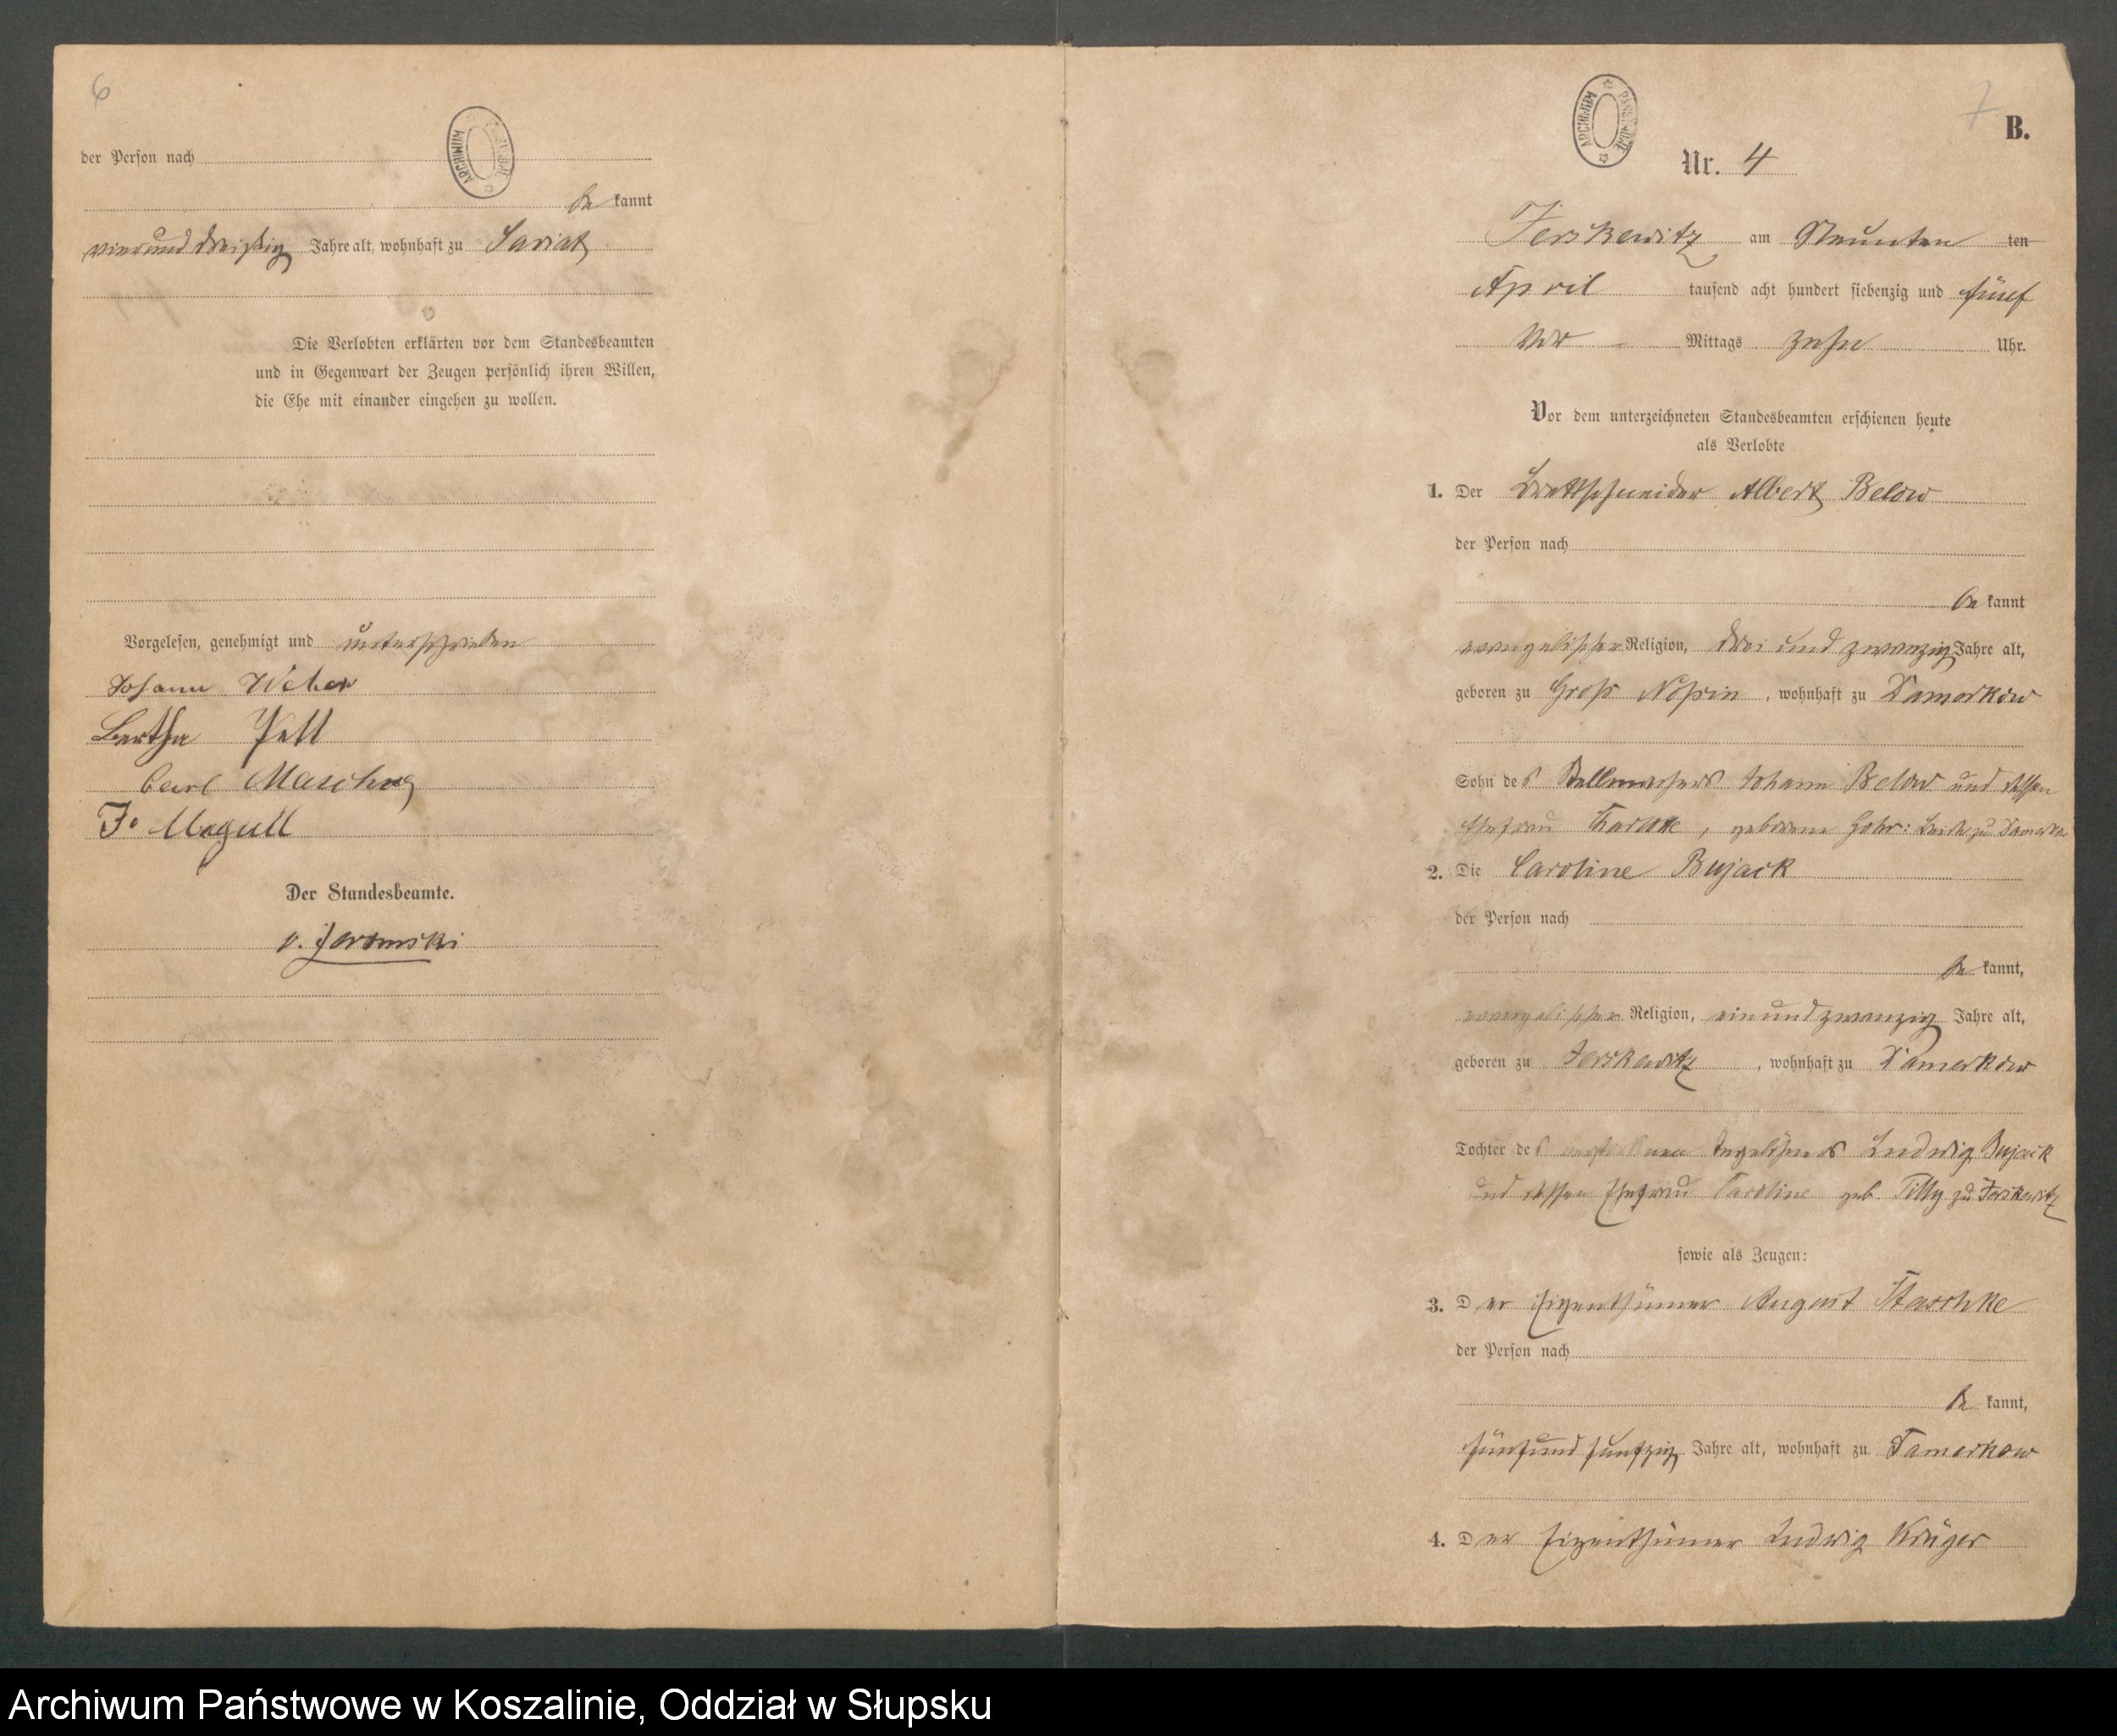 6
ARCHIWUM
der Person nach
bekannt
vierunddreißig Jahre alt, wohnhaft zu Saviat
Die Verlobten erklärten vor dem Standesbeamten
und in Gegenwart der Zeugen persönlich ihren Willen,
die Ehe mit einander eingehen zu wollen.
Vorgelesen, genehmigt und unterschrieben
Johann Weber
Bertha
Carl
Der Standesbeamte.
7
B.
ARCHIWUM PAŃSTWOWE
Nr. 4
Jerskewitz am Neunten ten
April tausend acht hundert siebenzig und fünf
Vor Mittags zehn Uhr.
Vor dem unterzeichneten Standesbeamten erschienen heute
als Verlobte
1. Der Brettschneider Albert Below
der Person nach
bekannt
evangelischer Religion, drei und zwanzig Jahre alt,
geboren zu Groß Noßin, wohnhaft zu Damerkow
Sohn des Stellmachers Johann Below und dessen
Ehefrau, geborene zu
2. Die Caroline Bujack
der Person nach
bekannt,
evangelischer Religion, einundzwanzig Jahre alt,
geboren zu Jerskewitz, wohnhaft zu Damerkow
Tochter des verstorbenen Tagelöhners Ludwig Bujack
und dessen Ehefrau Caroline geb. Tilly zu Jerskewitz
sowie als Zeugen:
3. Der Eigenthümer August Staschke
der Person nach
bekannt,
fünfundfunfzig Jahre alt, wohnhaft zu Damerkow
4. Der Eigenthümer Ludwig Krüger
Archiwum Państwowe w Koszalinie, Oddział w Słupsku